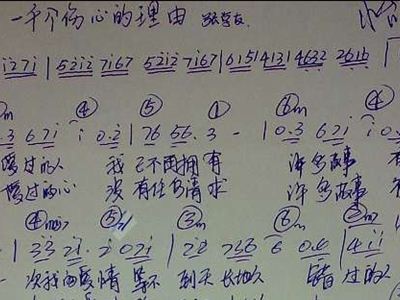 一千个伤心的理由 张学友
i27i | 52i2 7i67 52i2 7i67 | 6151 4131 4632 261
m ④ ⑤ ① ⑥m ④
.3 67i i 0.2 | 76 56. 3 - | 0.3 67i i 0.
爱过的人 我已不再拥有 许多故事 有
爱过的心 没有任何请求 许多故事
④maj7 ⑤ ③m ⑥m ②m
| 33 2i. 2 02i | 22 766 6 0.6 | 4ii
一次我的爱情 等不到天长地久 错过的人